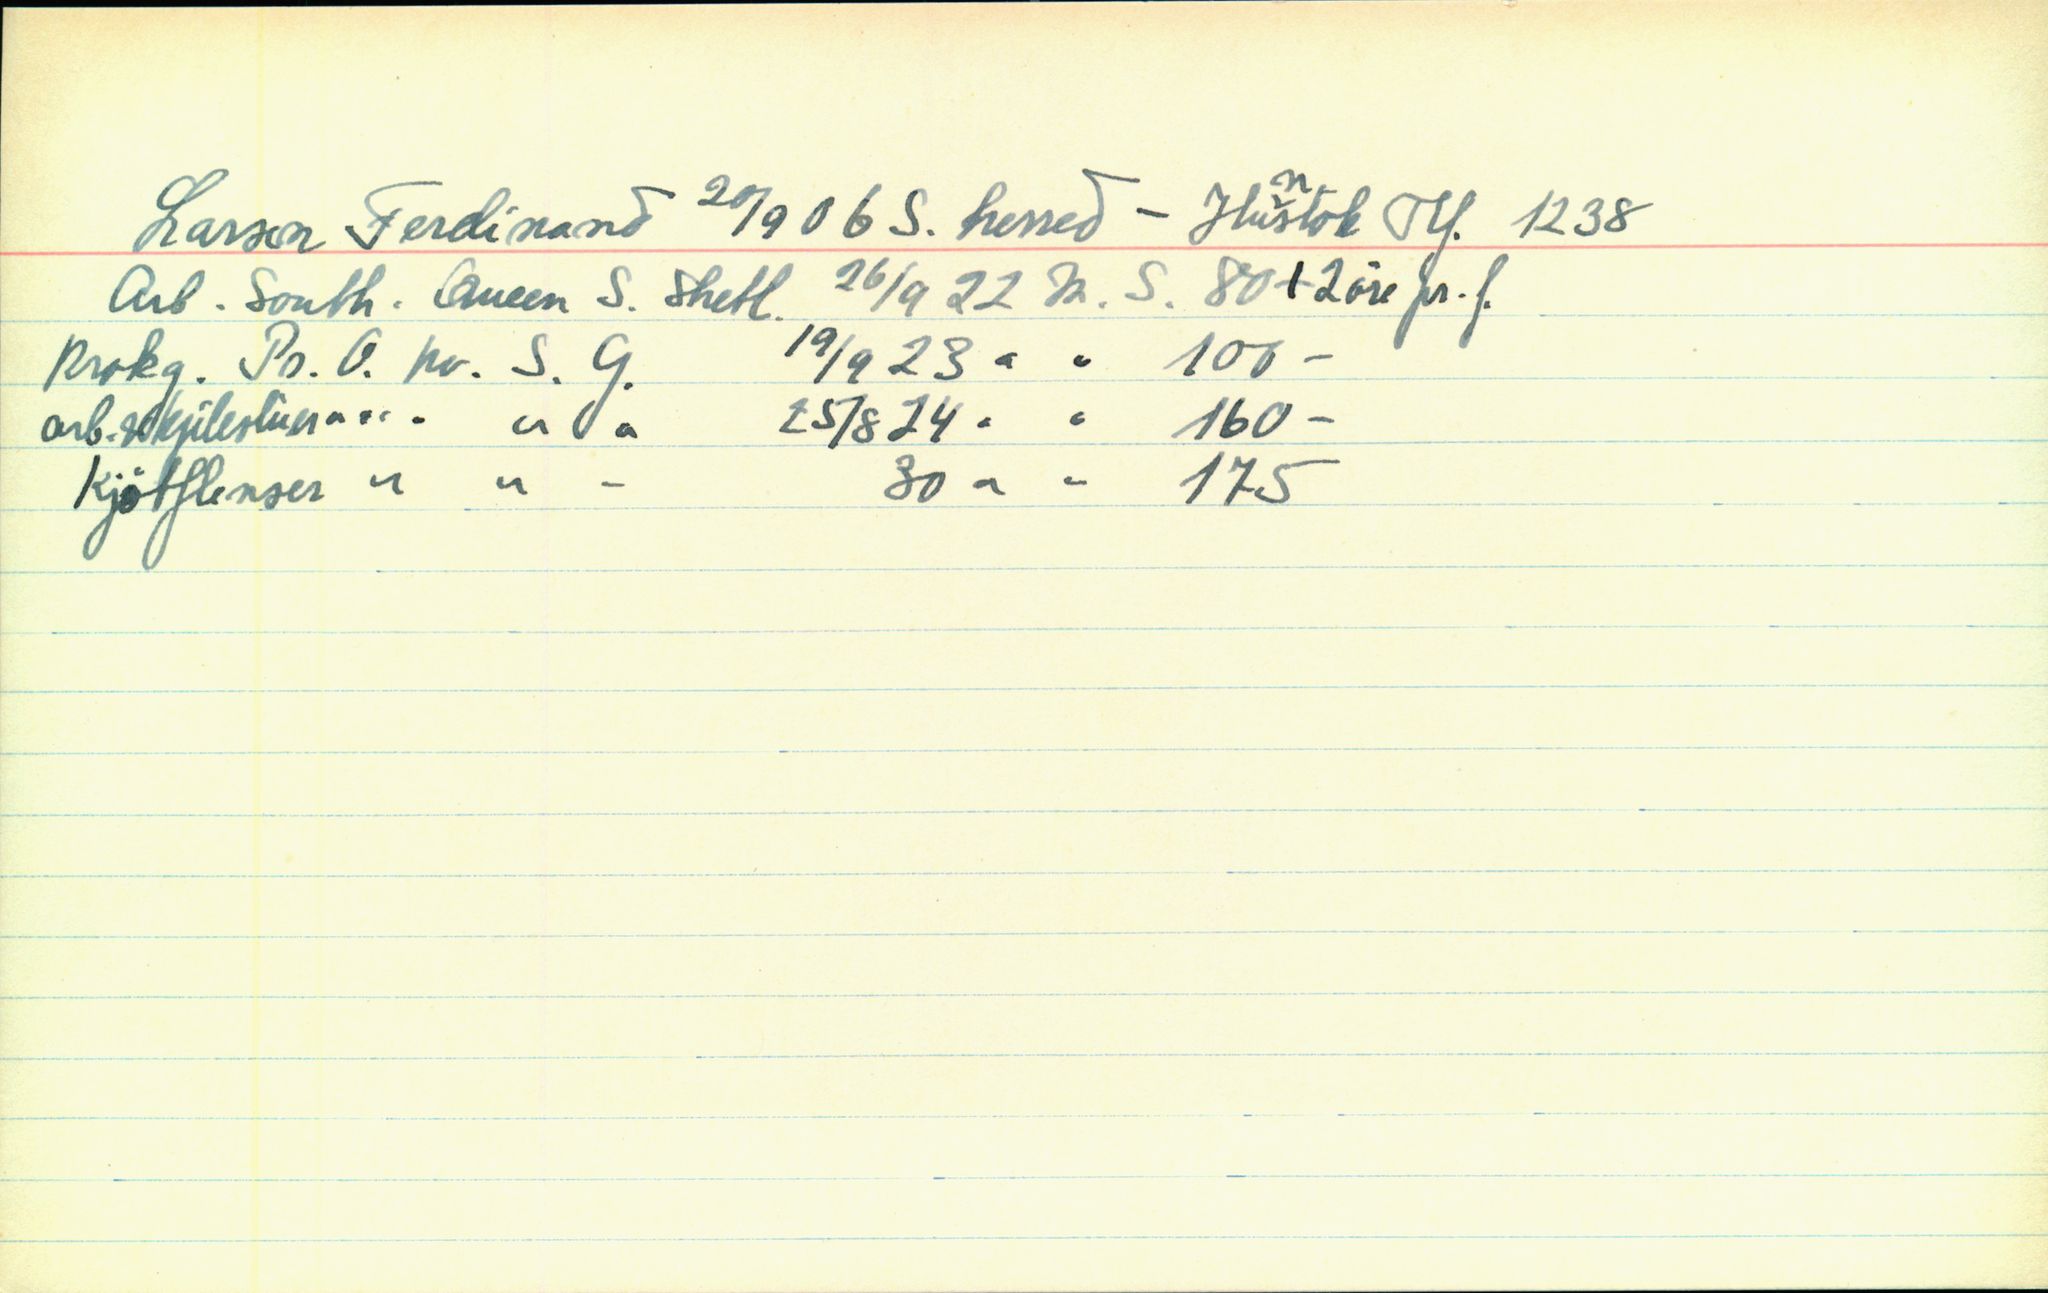 Larsen Ferdinand 20/9 06 S. herred - Tlf. 1238
Arb. South. Queen S. Shetl. 26/9 22 N. S. 80 + 2 öre pr. f.
Prokg. Pr. O. hv. S. G. 19/9 23 " " 100 -
arb. " " " " " 25/8 24 " " 160 -
Kjötflenser " " - 30 " " 175